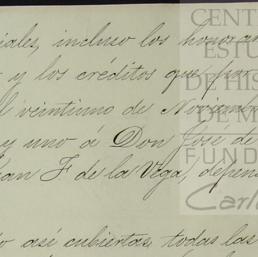 iales, incluso los honorar
y los créditos que por
l veintiuno de Noviembre
y uno á Don José de
an F de la Vega, depen
o así cubiertas, todas las
CENT
ESTU
DE HIS
DE M
FUND
Carl